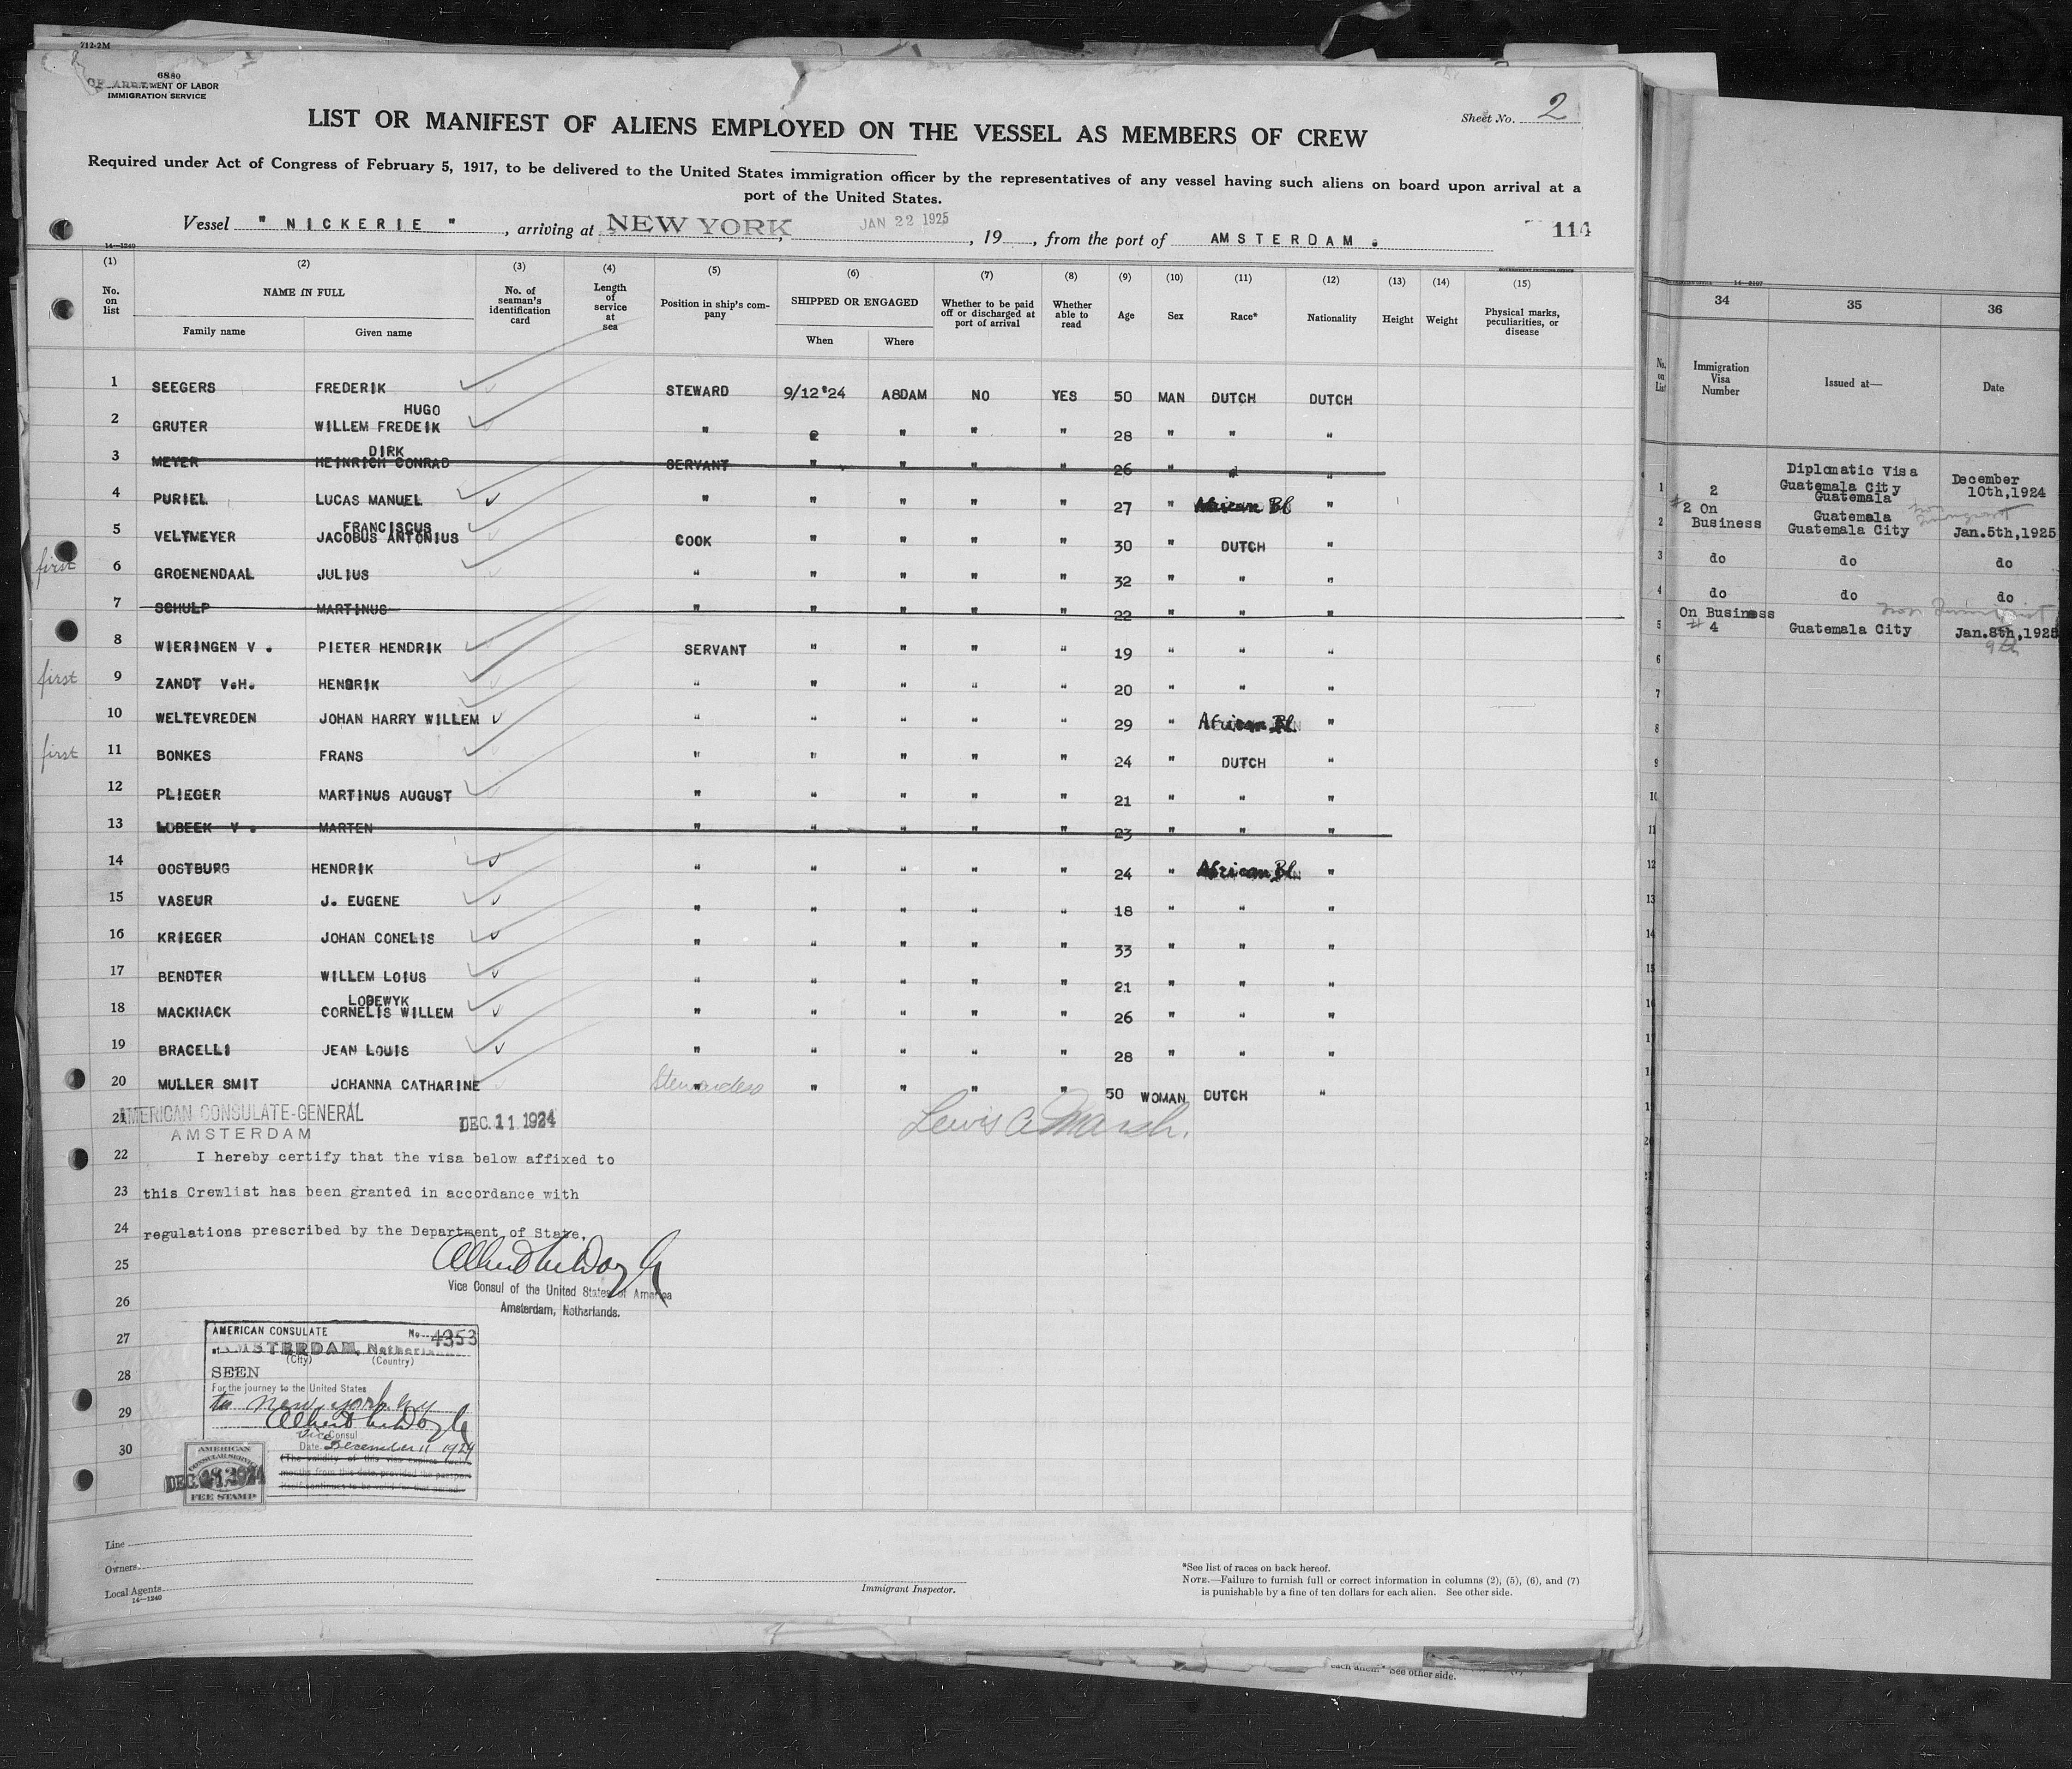 712-2M
6880
DEPARTMENT OF LABOR
IMMIGRATION SERVICE
Sheet No. 2
LIST OR MANIFEST OF ALIENS EMPLOYED ON THE VESSEL AS MEMBERS OF CREW
Required under Act of Congress of February 5, 1917, to be delivered to the United States immigration officer by the representatives of any vessel having such aliens on board upon arrival at a
port of the United States.
Vessel " NICKERIE " , arriving at NEW YORK, JAN 22 1925, 19 , from the port of AMSTERDAM. 114
14-1240
(1) (2) (3) (4) (5) (6) (7) (8) (9) (10) (11) (12) (13) (14) (15)
No. on list NAME IN FULL Family name Given name No. of seaman's identification card Length of service at sea Position in ship's company SHIPPED OR ENGAGED When Where Whether to be paid off or discharged at port of arrival Whether able to read Age Sex Race* Nationality Height Weight Physical marks, peculiarities, or disease
1 SEEGERS FREDERIK STEWARD 9/12'24 A8DAM NO YES 50 MAN DUTCH DUTCH
HUGO
2 GRUTER WILLEM FREDEIK " " " " " 28 " " "
DIRK
3 MEYER HEINRICH CONRAD SERVANT " " " " 26 " " "
4 PURIEL LUCAS MANUEL " " " " " 27 " African Bl "
FRANCISCUS
5 VELTMEYER JACOBUS ANTONIUS COOK " " " " 30 " DUTCH "
first 6 GROENENDAAL JULIUS " " " " " 32 " " "
7 SCHULP MARTINUS " " " " " 22 " " "
8 WIERINGEN V. PIETER HENDRIK SERVANT " " " " 19 " " "
first 9 ZANDT V.H. HENDRIK " " " " " 20 " " "
10 WELTEVREDEN JOHAN HARRY WILLEM " " " " " 29 " African Bl. "
first 11 BONKES FRANS " " " " " 24 " DUTCH "
12 PLIEGER MARTINUS AUGUST " " " " " 21 " " "
13 LOBEEK V. MARTEN " " " " " 23 " " "
14 OOSTBURG HENDRIK " " " " " 24 " African Bl. "
15 VASEUR J. EUGENE " " " " " 18 " " "
16 KRIEGER JOHAN CONELIS " " " " " 33 " " "
17 BENDTER WILLEM LOIUS " " " " " 21 " " "
LODEWYK
18 MACKNACK CORNELIS WILLEM " " " " " 26 " " "
19 BRACELLI JEAN LOUIS " " " " " 28 " " "
20 MULLER SMIT JOHANNA CATHARINE Stewardess " " " " 50 WOMAN DUTCH "
21 AMERICAN CONSULATE-GENERAL DEC. 11 1924 Lewis A Marsh.
AMSTERDAM
22 I hereby certify that the visa below affixed to
23 this Crewlist has been granted in accordance with
24 regulations prescribed by the Department of State.
25
Vice Consul of the United States of America
26 Amsterdam, Netherlands.
27 AMERICAN CONSULATE No. 4353
at AMSTERDAM, Netherlands
(City) (Country)
28 SEEN
For the journey to the United States
29 to New York N.Y.
Vice Consul
30 Date December 11 1924
(The validity of this visa expires twelve
months from this date, provided the passport
itself continues to be valid for that period.
AMERICAN
CONSULAR SERVICE
DEC. 11 1924
FEE STAMP
Line
Owners
Local Agents
14-1240
Immigrant Inspector.
*See list of races on back hereof.
NOTE.—Failure to furnish full or correct information in columns (2), (5), (6), and (7)
is punishable by a fine of ten dollars for each alien. See other side.
each alien. See other side.
14-2107
34 35 36
No. on List Immigration Visa Number Issued at— Date
1 2 Diplomatic Visa Guatemala City Guatemala December 10th,1924
2 #2 On Business Guatemala Guatemala City Jan.5th,1925
non Immigrant
3 do do do
4 do do do
non Immigrant
5 On Business # 4 Guatemala City Jan.8th,1925
9th
6
7
8
9
10
11
12
13
14
15
16
17
18
19
20